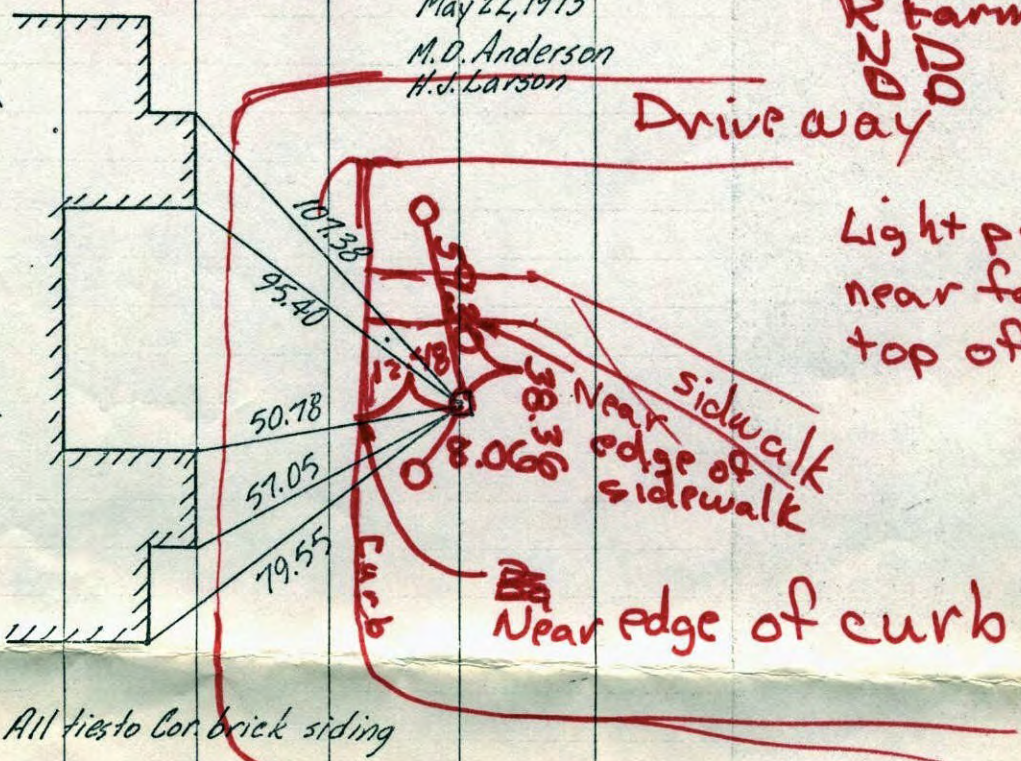 May 22, 1975
M.D. Anderson
H.J. Larson
Drive way
Light
near
top of
107.38
95.40
50.78
57.05
79.55
12.48
38.36
8.066
Near
edge of
sidewalk
sidwalk
Curb
Near edge of curb
All ties to Cor. brick siding